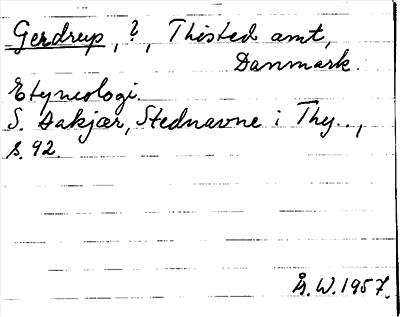 Gerdrup, ?, Thisted amt,
Danmark.
Etymologi.
S. Aakjær, Stednavne i Thy..,
s. 92.
Å. W. 1957.